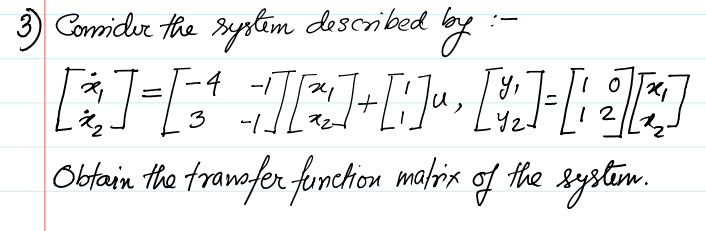 3) Consider the system described by :-
[ẋ₁ ẋ₂] = [-4 -1 3 -1] [x₁ x₂] + [1 1] u, [y₁ y₂] = [1 0 1 2] [x₁ x₂]
Obtain the transfer function matrix of the system.